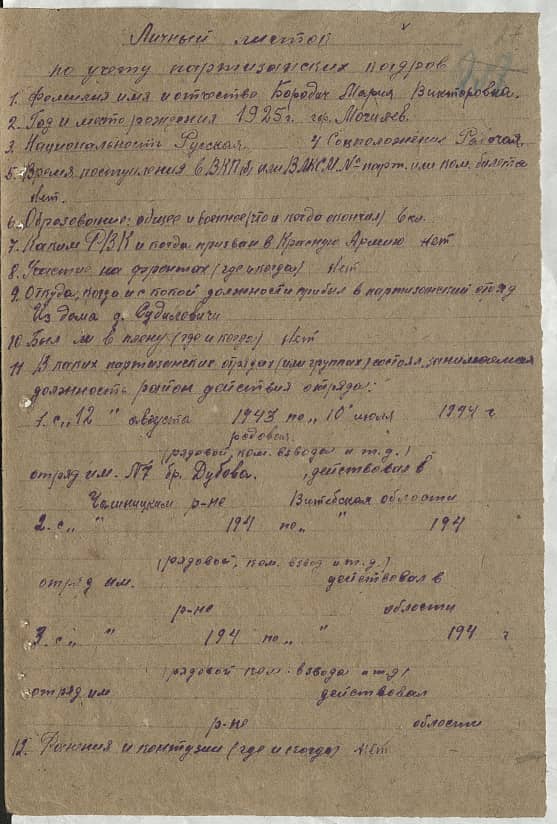 Личный листок
по учету партизанских кадров
1. Фамилия имя и отчество Бородич Мария Викторовна.
2. Год и место рождения 1925 г. гор. Могилев.
3. Национальность Русская. 4 Соцположение Рабочая
5. Время поступления в ВКП(б) или ВЛКСМ. № парт. или ком. билета
Нет.
6. Образование: общее и военное (что и когда окончил) 6 кл.
7. Каким РВК и когда призван в Красную Армию Нет
8. Участие на фронтах (где и когда) Нет
9. Откуда, когда и с какой должности прибыл в партизанский отряд
Из дома д. Судиловичи
10. Был ли в плену (где и когда) Нет
11. В каких партизанских отрядах (или группах) состоял, занимаемая
должность район действия отряда:
1. с „12 " августа 1943 по „ 10 " июля 1944 г
рядовая.
(рядовой, ком. взвода и т.д.)
отряд им. №7 бр. Дубова. действовал в
Чашницким р-не Витебская области
2. с „ " 194 по „ " 194
(рядовой, ком. взвод и т.д.)
отряд им. действовал в
р-не области
3. с „ " 194 по „ " 194 г
(рядовой ком. взвода и т.д)
отряд им действовал
р-не области
12. Ранения и контузии (где и когда) Нет